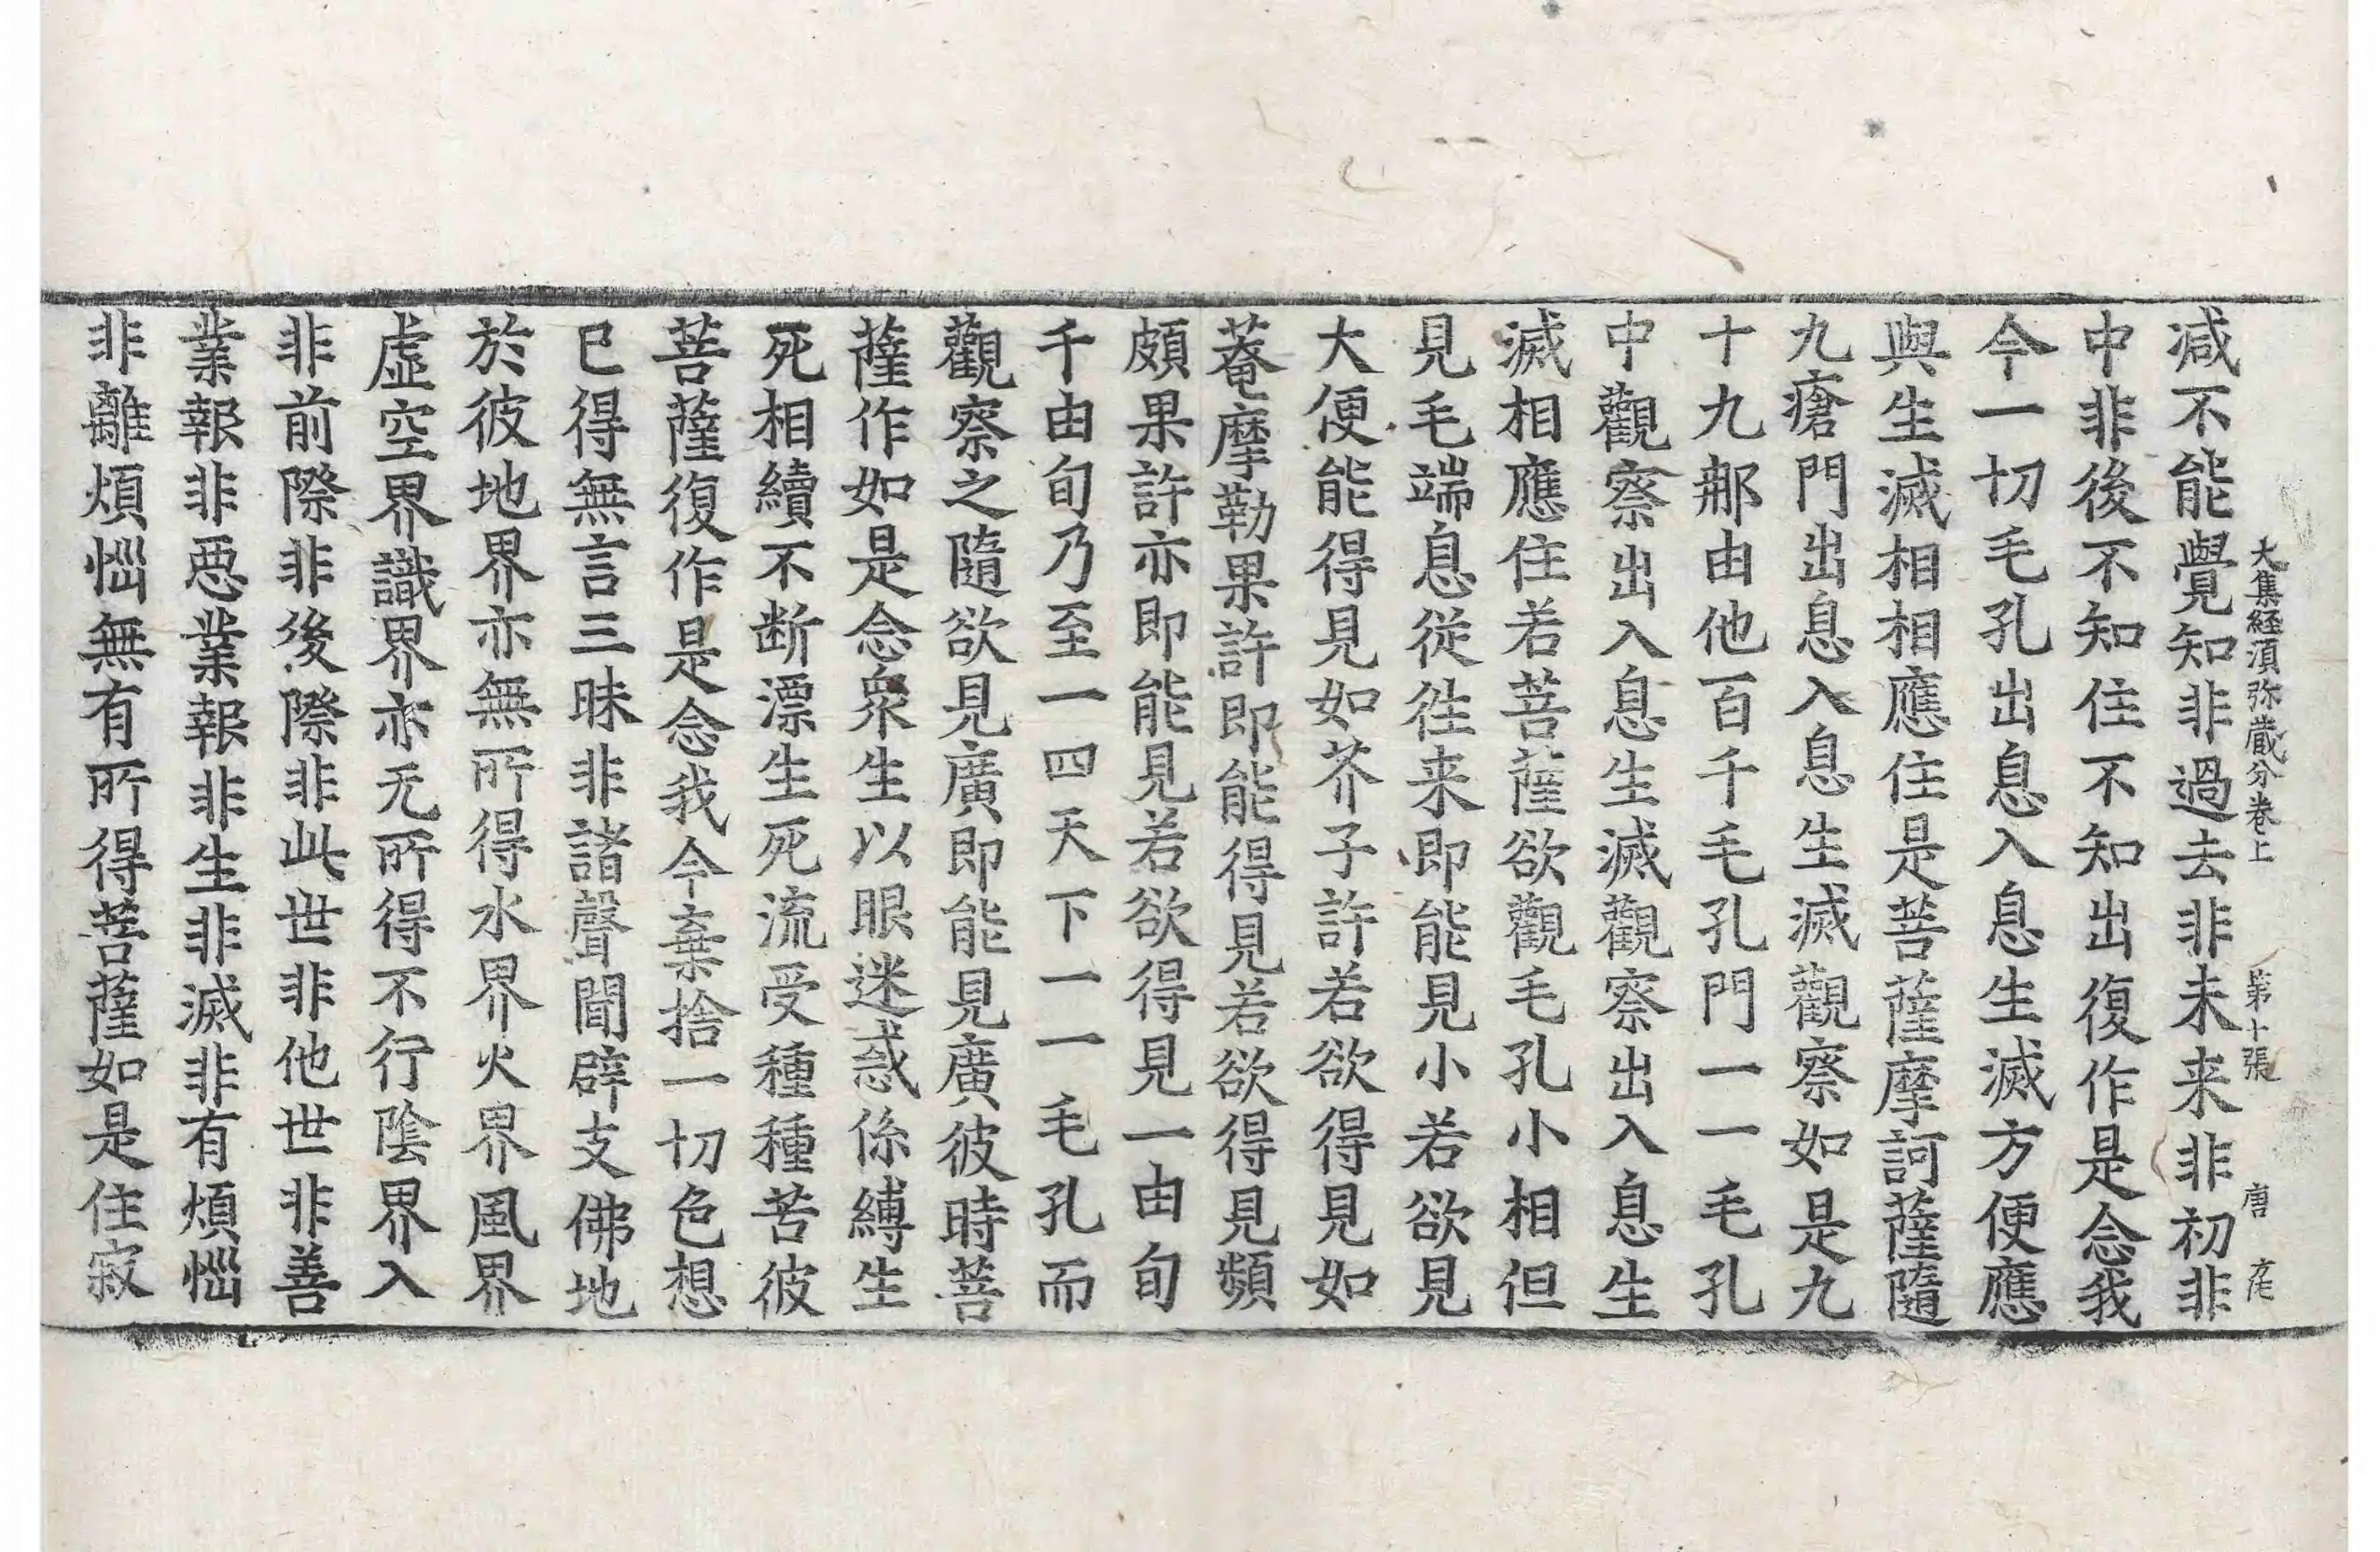 大集経湏弥蔵分巻上 第十張 唐
减不能覺知非過去非未来非初非
中非後不知住不知出復作是念我
今一切毛孔出息入息生滅方便應
與生滅相相應住是菩薩摩訶薩隨
九瘡門出息入息生滅觀察如是九
十九那由他百千毛孔門一一毛孔
中觀察出入息生滅觀察出入息生
滅相應住若菩薩欲觀毛孔小相但
見毛端息從徃来即能見小若欲見
大便能得見如芥子許若欲得見如
菴摩勒果許即能得見若欲得見頻
頗果許亦即能見若欲得見一由旬
千由旬乃至一四天下一一毛孔而
觀察之隨欲見廣即能見廣彼時菩
薩作如是念衆生以眼迷惑係縛生
死相續不断漂生死流受種種苦彼
菩薩復作是念我今棄捨一切色想
已得無言三昧非諸聲聞辟支佛地
於彼地界亦無所得水界火界風界
虛空界識界亦无所得不行陰界入
非前際非後際非此世非他世非善
業報非惡業報非生非滅非有煩惱
非離煩惱無有所得菩薩如是住寂